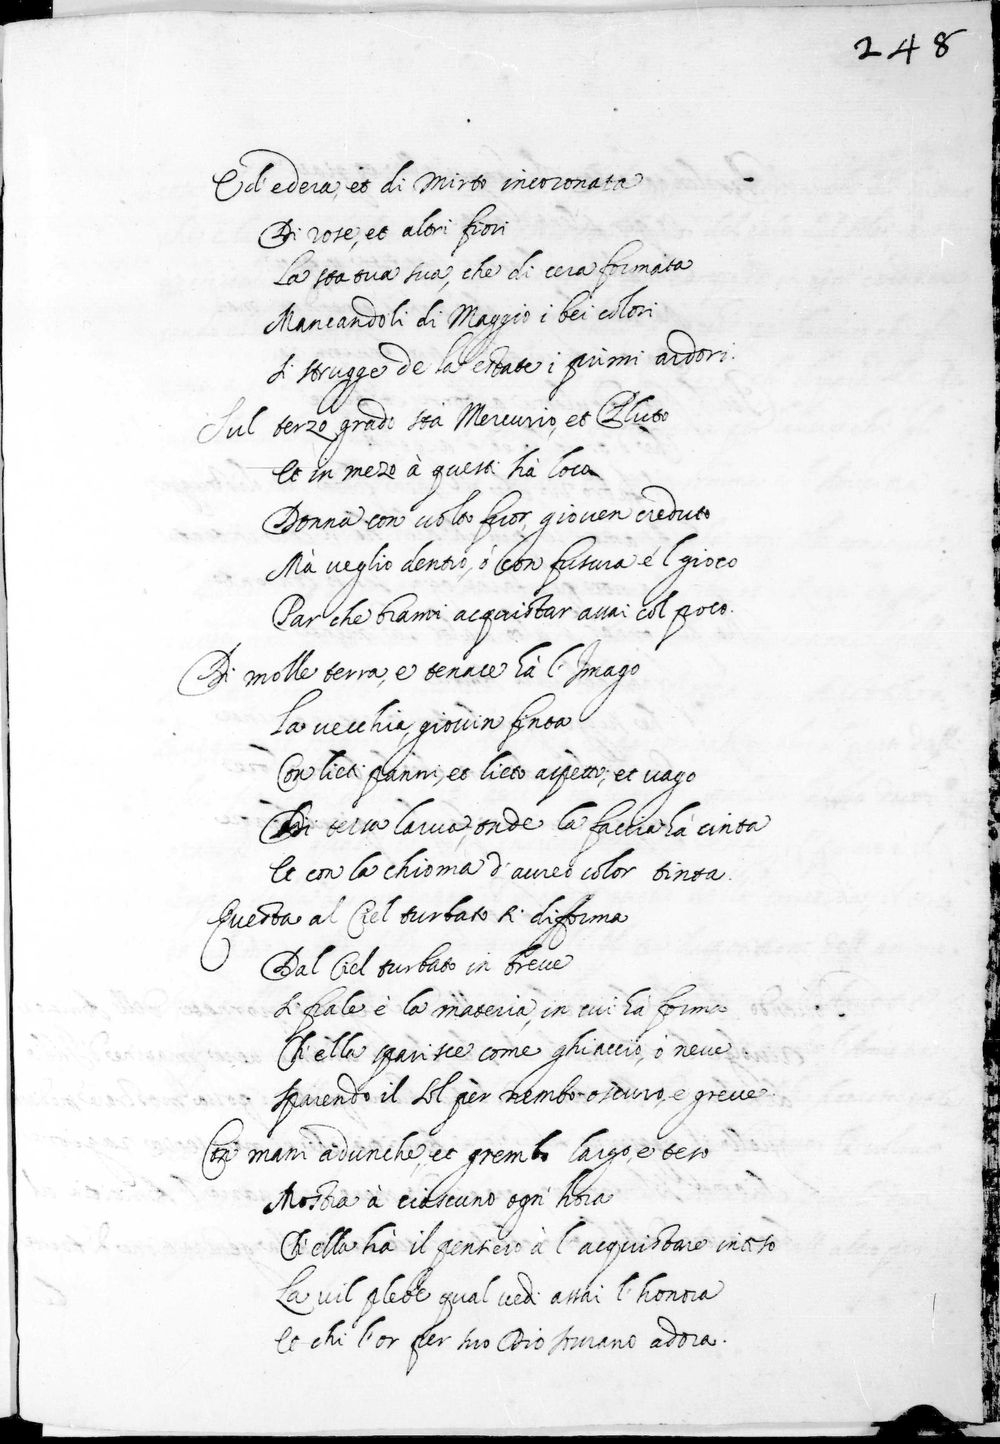 248
E d'edera, et di Mirto incoronata
Di rose, et altri fiori
La statua sua, che di cera formata
Mancandoli di Maggio i bei colori
Si strugge de la estate i primi ardori.
Sul terzo grado stà Mercurio, et Pluto
Et in mezo à questi hà loco
Donna con volto fuor, giouen creduto
Mà veglio dentro, ó con futura é l gioco
Par che brami acquistar assai col poco.
Di molle terra, e tenace hà l'Imago
La vecchia, giovin finta
Con lieti panni, et lieto aspetto, et vago
Di terza larua, onde la faccia hà cinta
Et con la chioma d'aureo color tinta.
Questa al Ciel turbato si difforma
Dal Ciel turbato in breue
Si frale è la materia, in cui hà forma
Ch'ella sparisce come ghiaccio, ó neue
Sparendo il Sol pèr nembo oscuro, e greue.
Con mani adunche, et grembo largo, e teso
Mostra à ciascuno ogn' hora
Ch'ella hà il pensiero à l'acquistare inteso
La vil plebe qual vedi assai l'honora
Et chi l'or per suo Dio sourano adora.